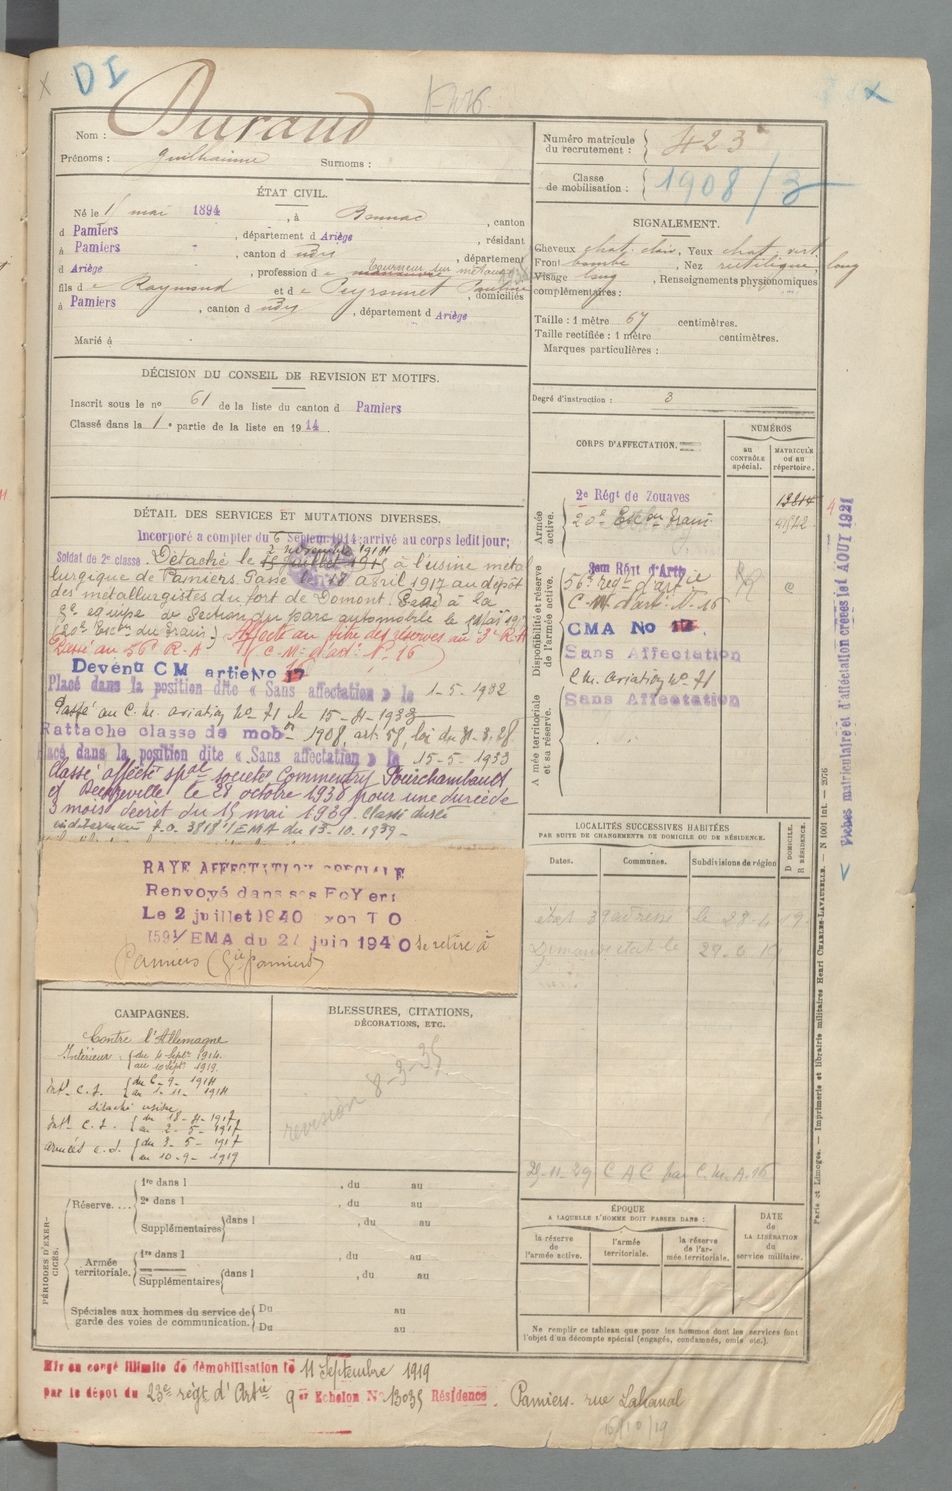 DI
Nom : Durand
Prénoms : Guilhaume Surnoms :
ÉTAT CIVIL.
Né le 15 mai 1894, à Bonnac, canton
d Pamiers, département d Ariège, résidant
à Pamiers, canton d udis, département
d Ariège, profession d e manœuvre tourneur sur métaux
fils d e Raymond et d e Peyronnet Pauline domiciliés
à Pamiers, canton d udis, département d Ariège
Marié à
DÉCISION DU CONSEIL DE REVISION ET MOTIFS.
Inscrit sous le no 61 de la liste du canton d Pamiers
Classé dans la 1 e partie de la liste en 1914.
DÉTAIL DES SERVICES ET MUTATIONS DIVERSES.
Incorporé a compter du 6 Septem. 1914: arrivé au corps ledit jour;
Soldat de 2e classe. Détaché le 2 novembre 1914 à l'usine méta
lurgique de Pamiers. Passé le 18 avril 1917 au dépôt
des métallurgistes du fort de Domont. Passé à la
équipe de Section du parc automobile le
(20e Escon du Train.) Affecté au titre des réserves au 3e R.A
Passé au 56e R.A (C.M. d'arti: No 16
Devenu CM artie No 17
Placé dans la position dite « Sans affectation » le 1-5-1932
Passé au C.M. aviation No 71 le 15-11-1932
Rattaché classe de mobon 1908, art. 58, loi du 31-3-28
Placé dans la position dite « Sans affectation » le 15-5-1933
Classé, affecté spal societé Commentry Fourchambault
et Decazeville le 28 octobre 1938 pour une durée de
3 mois décret du 15 mai 1939. Classé durée
indéterminée T.O. 3818 1/EMA du 13.10.1939-
RAYE AFFECTATION SPECIALE
Renvoyé dans ses FoYers
Le 2 juillet 1940 T O
1591/EMA du 27 juin 1940 Se retire à
Pamiers (Gie Pamiers)
CAMPAGNES.
Contre l'Allemagne
Intérieur : { du 4 Septre 1914.
au 10 Septre 1919.
Int. C.S. { du 6-9-1914
au 1-11-1914
détaché usine
Int. C.S. { du 18-4-1917
au 2-5-1917
armées c.d. { du 3-5-1917
au 10-9-1919
BLESSURES, CITATIONS,
DÉCORATIONS, ETC.
revision 8-3-35
PÉRIODES D'EXERCICES.
Réserve.... { 1re dans l , du au
2e dans l , du au
Supplémentaires { dans l , du au
Armée territoriale. { 1re dans l , du au
Supplémentaires { dans l , du au
Spéciales aux hommes du service de { Du au
garde des voies de communication. { Du au
Numéro matricule
du recrutement : } 423
Classe
de mobilisation : } 1908/3
SIGNALEMENT.
Cheveux chat. clair, Yeux chat. vert.
Front bombé, Nez rectiligne, long
Visage long, Renseignements physionomiques
complémentaires :
Taille : 1 mètre 67 centimètres.
Taille rectifiée : 1 mètre centimètres.
Marques particulières :
Degré d'instruction : 3
CORPS D'AFFECTATION.
NUMÉROS
au CONTRÔLE spécial.
MATRICULE ou au répertoire.
Armée active.
2e Régt de Zouaves
20e Escon Train
Disponibilité et réserve de l'armée active.
3eme Régt d'Artie
56e regt d'artie
C.M. d'art. No 16
CMA No 17
Sans Affectation
C.M. aviation No 71
Armée territoriale et sa réserve.
Sans Affectation
LOCALITÉS SUCCESSIVES HABITÉES
PAR SUITE DE CHANGEMENTS DE DOMICILE OU DE RÉSIDENCE.
Dates. Communes. Subdivisions de région
D DOMICILE. R RÉSIDENCE.
29-11-29 C A C par C.M.A. 16
ÉPOQUE
A LAQUELLE L'HOMME DOIT PASSER DANS :
la réserve de l'armée active.
l'armée territoriale.
la réserve de l'armée territoriale.
DATE
de
LA LIBÉRATION
du
service militaire.
Ne remplir ce tableau que pour les hommes dont les services font
l'objet d'un décompte spécial (engagés, condamnés, omis etc.).
Fiches matriculaire et d'affectation créées le 4 AOUT 1921
Paris et Limoges. — Imprimerie et librairie militaires Henri CHARLES-LAVAUZELLE. —
Mis en congé illimité de démobilisation le 11 Septembre 1919
par le dépôt du 23e régt d'Artie 9er Echelon No 13035 Résidence. Pamiers. rue Lakanal
16/10/19